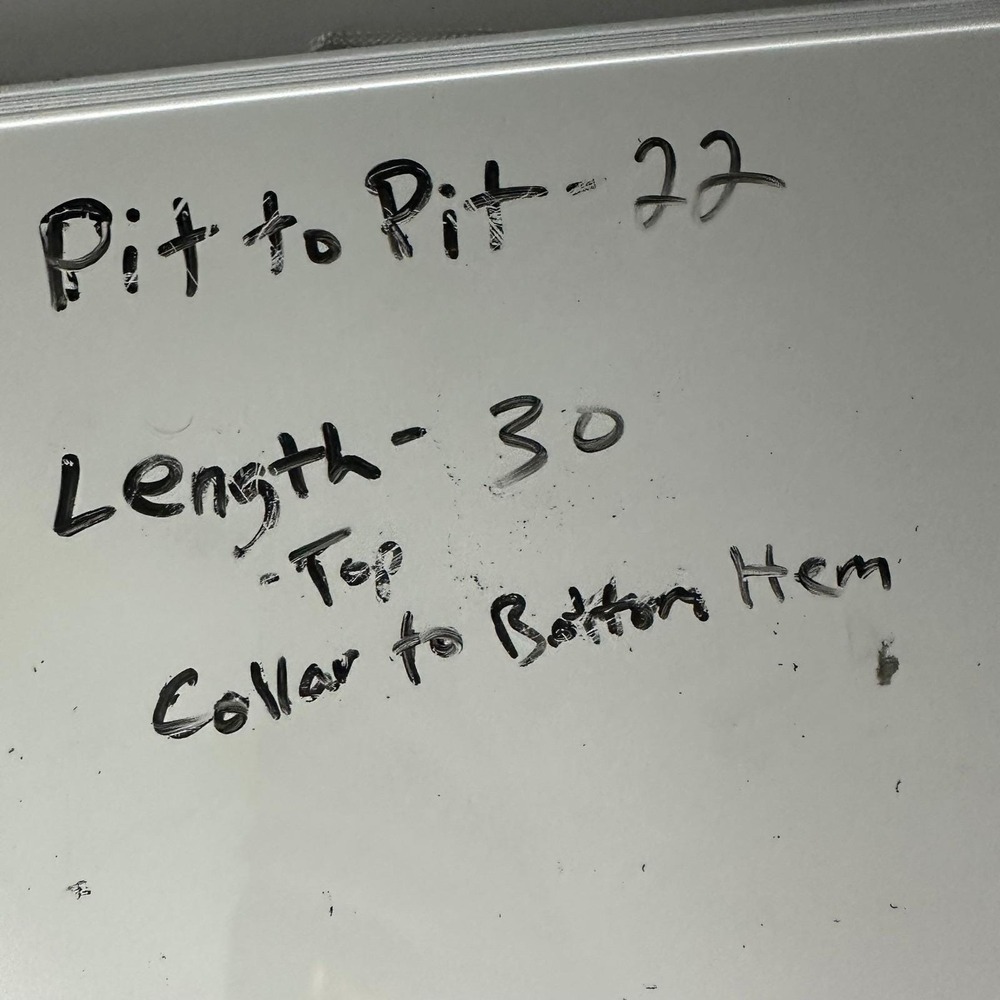 Pit to Pit - 22
Length - 30
- Top
Collar to Bottom Hem